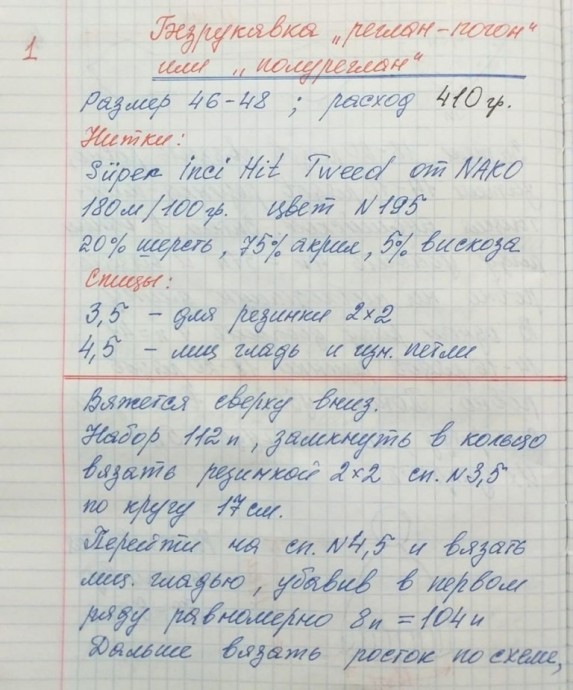 1
Безрукавка „реглан-погон"
или „полуреглан"
Размер 46-48 ; расход 410 гр.
Нитки:
Süper inci Hit Tweed от NAKO
180 м/100 гр. цвет N195
20% шерсть, 75% акрил, 5% вискоза
Спицы:
3,5 - для резинки 2×2
4,5 - лиц гладь и изн. петли
Вяжется сверху вниз.
Набор 112 п, замкнуть в кольцо
вязать резинкой 2×2 сп. N3,5
по кругу 17 см.
Перейти на сп. N4,5 и вязать
лиц. гладью, убавив в первом
ряду равномерно 8п = 104п
Дальше вязать росток по схеме,